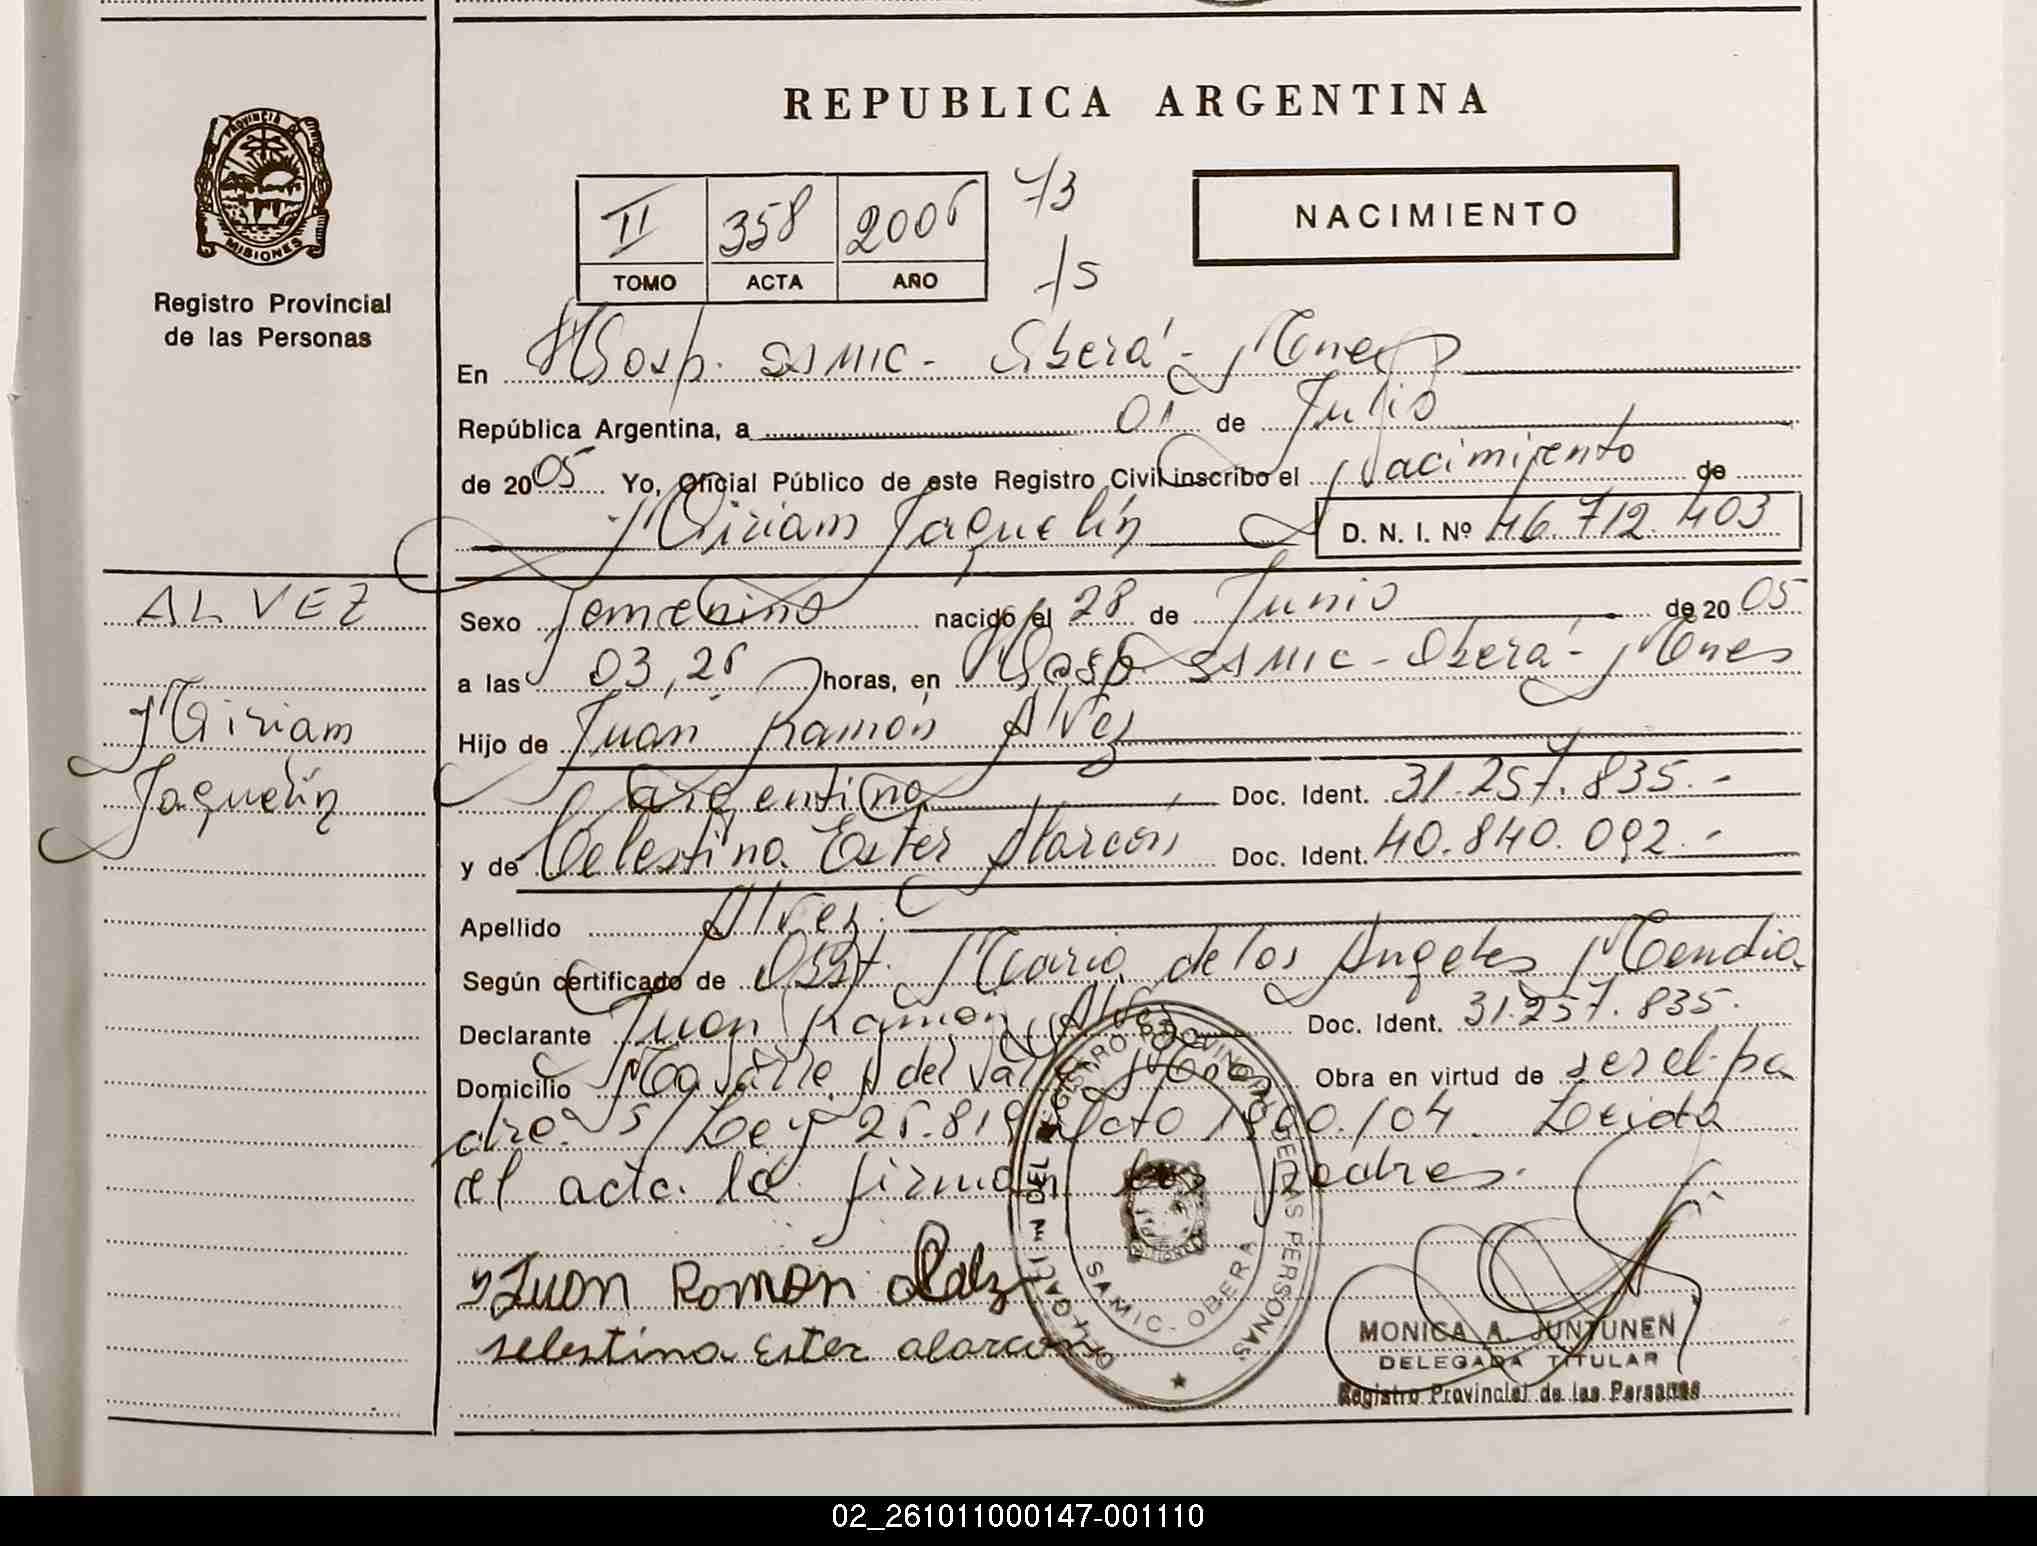 REPUBLICA ARGENTINA
PROVINCIA DE MISIONES
Registro Provincial
de las Personas
II 358 2006
TOMO ACTA AÑO
73
/5
NACIMIENTO
En Hosp. SAMIC - Oberá - Mnes
República Argentina, a 01 de Julio
de 2005 Yo, Oficial Público de este Registro Civil inscribo el Nacimiento de
Miriam Jaquelín D. N. I. Nº 46.712.403
ALVEZ
Miriam
Jaquelín
Sexo femenino nacido el 28 de Junio de 2005
a las 03,26 horas, en Hosp. SAMIC - Oberá - Mnes
Hijo de Juan Ramón Alvez
argentino Doc. Ident. 31.257.835.-
y de Celestina Ester Alarcón Doc. Ident. 40.840.092.-
Apellido Alvez.
Según certificado de Obst. María de los Angeles Mendia
Declarante Juan Ramón Alvez Doc. Ident. 31.257.835.
Domicilio A. del Valle Mnes Obra en virtud de ser el pa
dre. S/ Ley 26.819 Dcto 1990/04. Leída
el acta la firman los padres.
Juan Roman
selestina Ester alarcon
DELEGACIÓN DEL REGISTRO PROVINCIAL DE LAS PERSONAS
SAMIC - OBERA
MONICA A. JUNTUNEN
DELEGADA TITULAR
Registro Provincial de las Personas
02_261011000147-001110